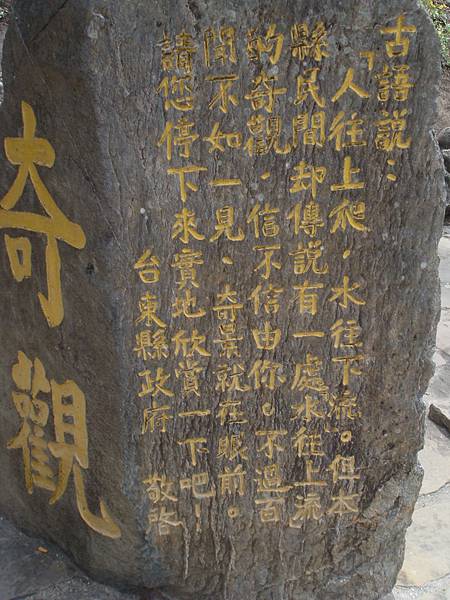 古語說：
「人往上爬，水往下流。但本
縣民間却傳說有一處水往上流
的奇觀，信不信由你。不過百
聞不如一見、奇景就在眼前。
請您停下來實地欣賞一下吧！
台東縣政府 敬啓
奇觀